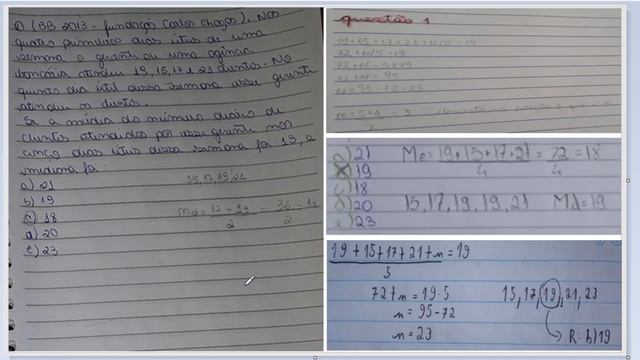 (BB 2013 - fundação Carlos Chagas), Nos
quatro primeiros dias úteis de uma
semana o gerente de uma agência
bancária atendeu 19, 15, 17 e 21 clientes. No
quinto dia útil dessa semana esse gerente
atendeu n clientes.
Se a média do número diário de
clientes atendidos por esse gerente nos
cinco dias úteis dessa semana foi 19, a
mediana foi:
a) 21
b) 19
c) 18
d) 20
e) 23
15, 17, 19, 21
Md = 17 + 19 = 36 = 18
2 2
questão 1
19+15+17+21+N/5=19
72+N/5=19
72+N=5x19
72+N=95
N=95-72=23
m=5+1=3
2
a) 21
b) 19
c) 18
d) 20
e) 23
Me = 19+15+17+21 = 72 = 18
4 4
15, 17, 19, 19, 21 Md = 19
19 + 15 + 17 + 21 + n = 19
5
72 + n = 19 · 5
n = 95 - 72
n = 23
15, 17, 19, 21, 23
R: b) 19